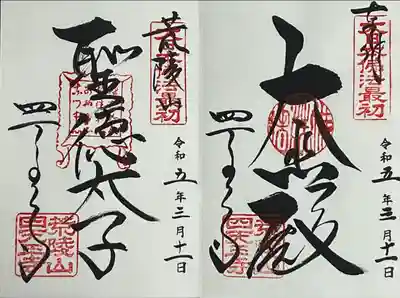 大日本佛法最初
大悲殿
四天王寺
令和五年三月十一日
荒陵山
大日本佛法最初
聖徳太子
四天王寺
令和五年三月十一日
荒陵山
四天王寺